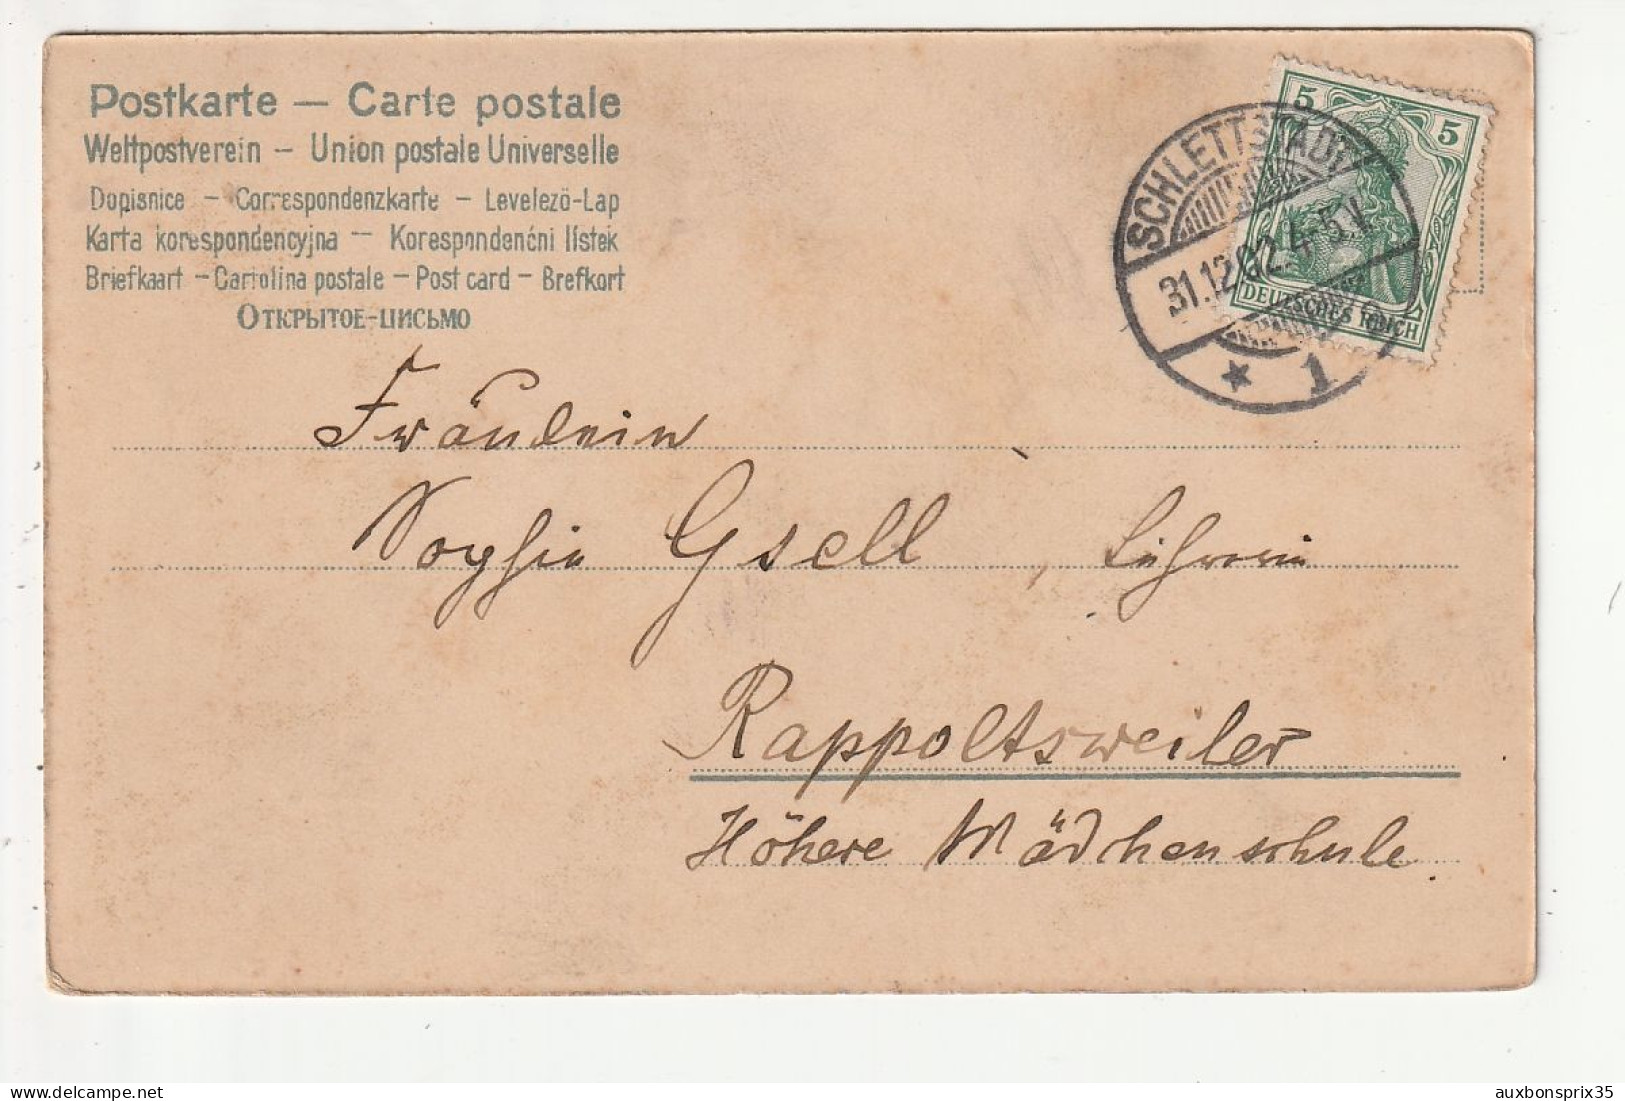 Postkarte — Carte postale
Weltpostverein – Union postale Universelle
Dopisnice – Correspondenzkarte – Levelező-Lap
Karta korespondencyjna — Korespondenční lístek
Briefkaart – Cartolina postale – Post card – Brefkort
Открытое-письмо
5 5
DEUTSCHES REICH
SCHLETTSTADT
31.12.02.4-5.V.
* 1
Fräulein
Sophie Gsell, Lehrerin
Rappoltsweiler
Höhere Mädchenschule.
auxbonsprix35